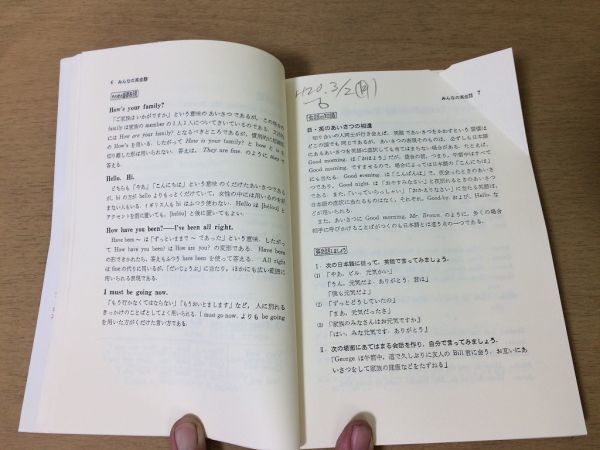 6 みんなの英会話
その他の重要表現
How's your family?
「ご家族はいかがですか」という意味のあいさつであるが、この場合の
family は家族の member の1人1人についてきいているのである。文法的
には How are your family? となるべきところであるが、慣用的に短縮形
の How's を用いる。したがって How is your family? と how と is を
切り離した形は用いられない。答えは、They are fine. のように they で
答える。
Hello. Hi.
どちらも「やあ」「こんにちは」という意味のくだけたあいさつである
が、hi の方が hello よりもっとくだけていて、女性の中には用いるのを好
まない人もいる。イギリス人も hi はふつう使わない。Hello は [hélou] と
アクセントを前に置いても、[helóu] と後に置いてもよい。
How have you been?—I've been all right.
Have been ~ は「ずっといままで ~ であった」という意味、したがっ
て How have you been? は How are you? の変形である。Have been
の形できかれたら、答えもふつう have been を使って答える。All right
は fine の代りに用いるが、「だいじょうぶ」に当たり、ほかにも広い範囲に
用いられる表現である。
I must be going now.
「もう行かなくてはならない」「もうおいとまします」など、人に別れる
きっかけのことばとしてよく用いられる。I must go now. よりも be going
を用いた方がくだけた言い方である。
みんなの英会話 7
H20.3/2(日)
会話の知識
日・英のあいさつの相違
知り合いの人同士が行き会えば、英語であいさつをかわすという習慣は
どこの国でも同じであるが、あいさつの表現そのものは、必ずしも日本語
にあるあいさつを英語に直訳しても当てはまらない場合がある。たとえば、
Good morning. は「おはよう」だが、昼食の前、つまり、午前中はすべて
Good morning. ですませるので、場合によっては日本語の「こんにちは」
にも当たる。Good evening. は「こんばんは」で、夜会ったときのあいさ
つであり、Good night. は「おやすみなさい」と夜別れるときのあいさつ
である。また、「いっていらっしゃい」「おかえりなさい」に当たる英語は、
日本語の直訳に当たるものはなく、それぞれ、Good-by. および、Hello. な
どが用いられる。
また、あいさつに Good morning, Mr. Brown. のように、多くの場合
相手に呼びかけることばがつくのも日本語とは違う点の一つである。
英会話しましょう
Ⅰ. 次の日本語に従って、英語で言ってみましょう。
(1) 「やあ、ビル、元気かい」
「うん、元気だよ。ありがとう。君は」
「僕も元気だよ」
(2) 「ずっとどうしていたの」
「まあ、元気だったさ」
(3) 「家族のみなさんはお元気ですか」
「はい、みな元気です。ありがとう」
Ⅱ. 次の場面にあてはまる会話を作り、自分で言ってみましょう。
「George は午前中、道で久しぶりに友人の Bill 君に会う。お互いにあ
いさつをして家族の健康などをたずねる」